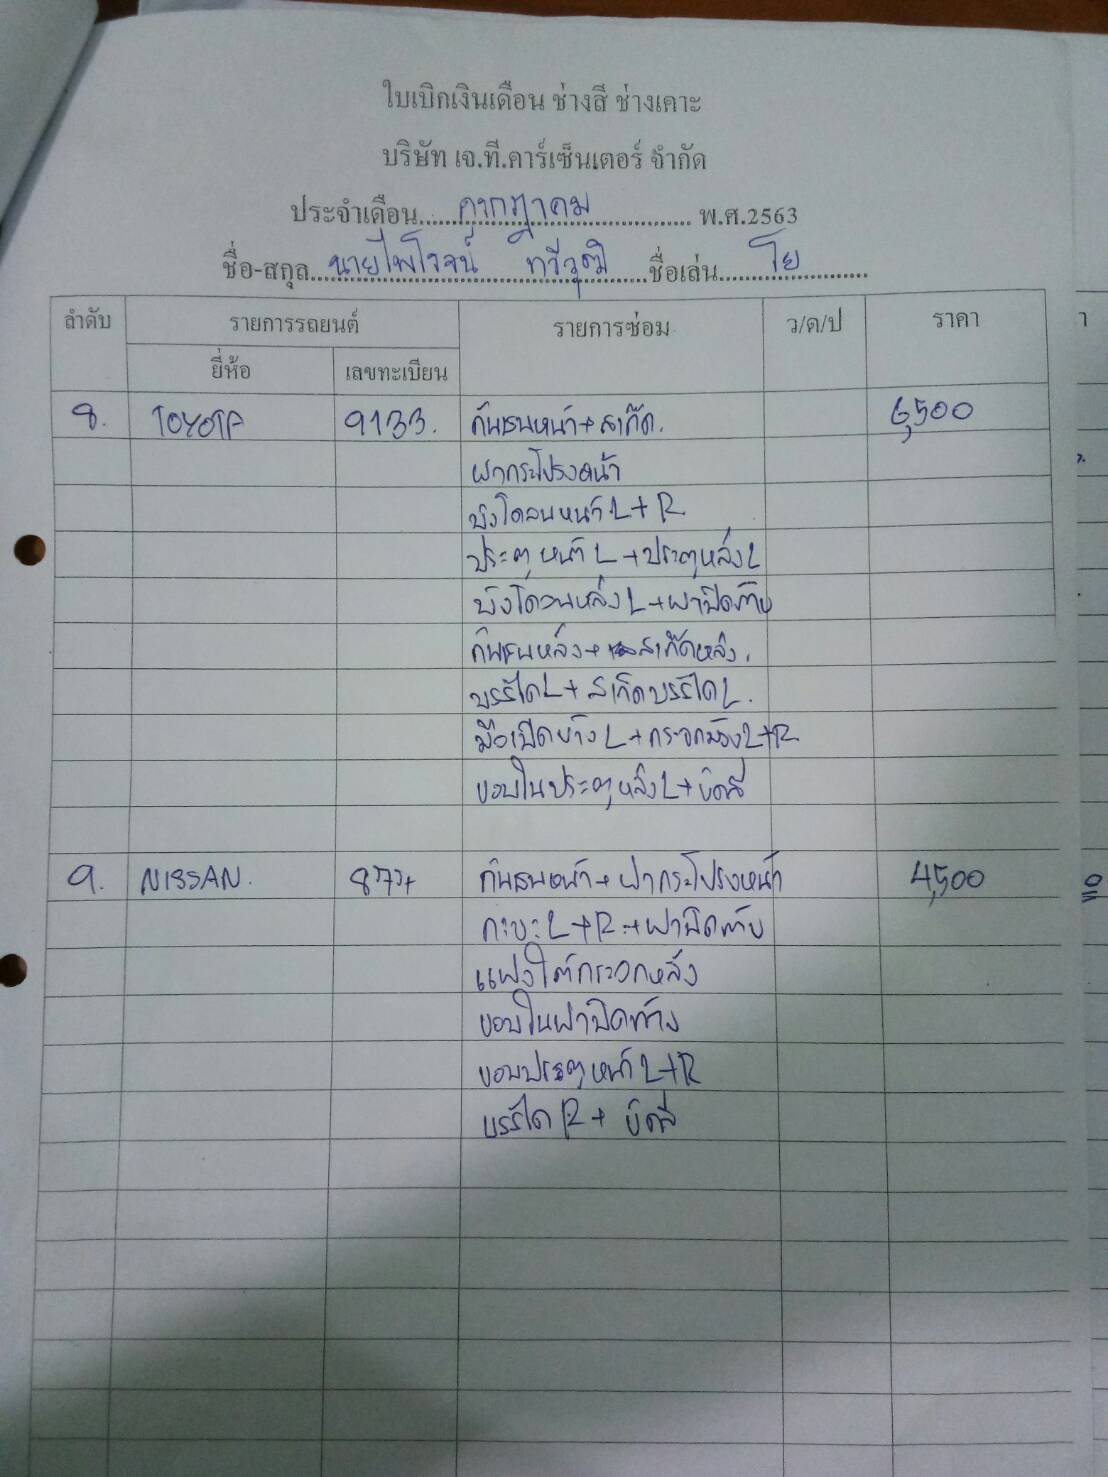 ใบเบิกเงินเดือน ช่างสี ช่างเคาะ
บริษัท เจ.ที.คาร์เซ็นเตอร์ จำกัด
ประจำเดือน กรกฎาคม พ.ศ.2563
ชื่อ-สกุล นายไพโรจน์ ทวีวุฒิ ชื่อเล่น โย
ลำดับ รายการรถยนต์ รายการซ่อม ว/ด/ป ราคา
ยี่ห้อ เลขทะเบียน
8. TOYOTA 9133. กันชนหน้า+สเกิ๊ต. 6,500
ฝากระโปรงหน้า
บังโคลนหน้า L+R
ประตูหน้า L+ประตูหลัง L
บังโคลนหลัง L+ฝาปิดท้าย
กันชนหลัง+สเกิ๊ตหลัง.
บรรได L+สเกิ๊ตบรรได L.
มือเปิดข้าง L+กระจกมอง L+R
ขอบในประตูหลัง L+ขัดสี
9. NISSAN. กันชนหน้า+ฝากระโปรงหน้า 4,500
กะบะ L+R+ฝาปิดท้าย
แผงใต้กระจกหลัง
ขอบในฝาปิดท้าย
ขอบประตูหน้า L+R
บรรได R+ ขัดสี